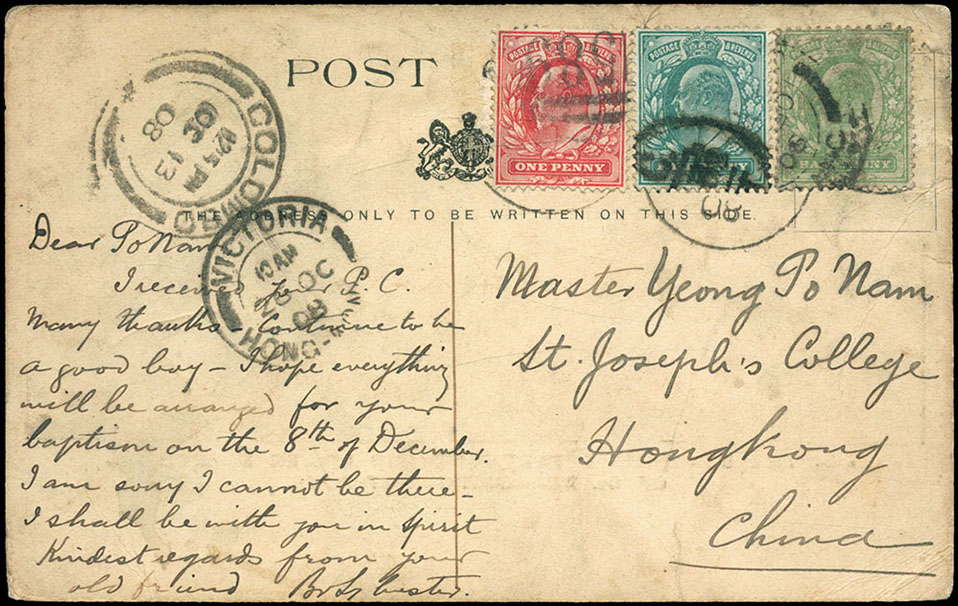 POST
THE ADDRESS ONLY TO BE WRITTEN ON THIS SIDE.
POSTAGE & REVENUE
ONE PENNY
POSTAGE & REVENUE
POSTAGE & REVENUE
HALFPENNY
COLOMBO
OC
13
08
VICTORIA
10 AM
26 OC
08
HONG-KONG
08
Dear Po Nam
I received your P.C.
Many thanks. Continue to be
a good boy - I hope everything
will be arranged for your
baptism on the 8th of December.
I am sorry I cannot be there -
I shall be with you in Spirit
Kindest regards from your
old friend Br Sylvester.
Master Yeong Po Nam
St. Joseph's College
Hongkong
China